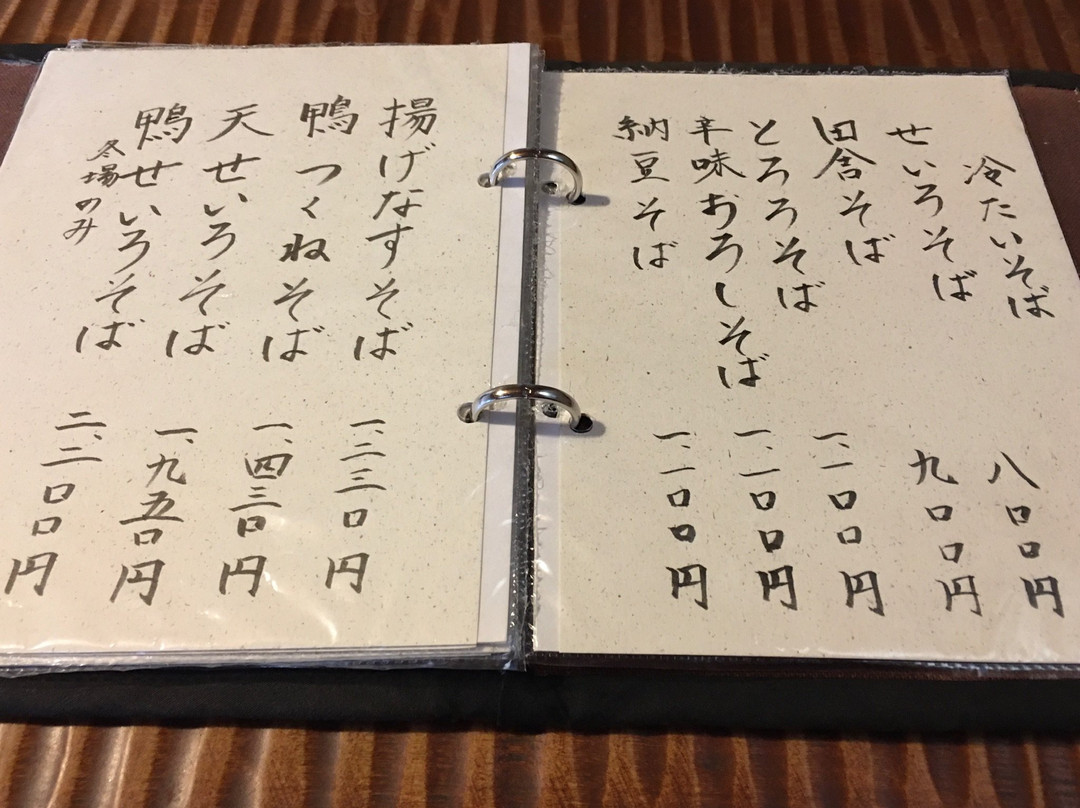 冷たいそば
せいろそば 八〇〇円
田舎そば 九〇〇円
とろろそば 一、一〇〇円
辛味おろしそば 一、一〇〇円
納豆そば 一、一〇〇円
揚げなすそば 一、二三〇円
鴨つくねそば 一、四三〇円
天せいろそば 一、九五〇円
鴨せいろそば 二、三〇〇円
冬場のみ